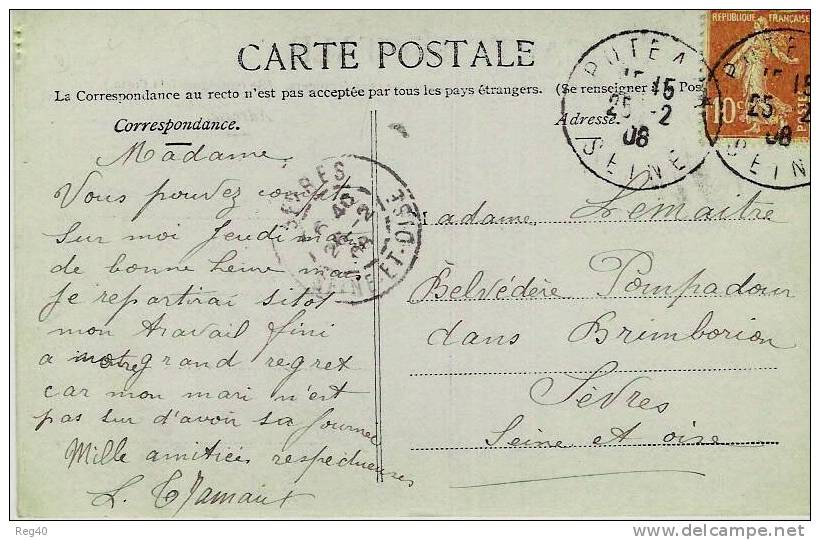 CARTE POSTALE
La Correspondance au recto n'est pas acceptée par tous les pays étrangers. (Se renseigner Pos
Correspondance.
Adresse
REPUBLIQUE FRANÇAISE
10c
POSTES
PUTEA
15
25 -2
08
SEINE
PUTE
15
25 -2
08
SEIN
SEVRES
6 40
26 -2
08
SEINE-ET-OISE
Madame,
Vous pouvez
sur moi Jeudi
de bonne heure mais
Je repartirai sitot
mon travail fini
a notre grand regret
car mon mari n'est
pas sur d'avoir sa Journée
Mille amitiées respectueuses
Madame Lemaitre
Belvédère Pompadour
dans Brimborion
Sèvres
Seine et oise
Reg40
www.delcampe.net